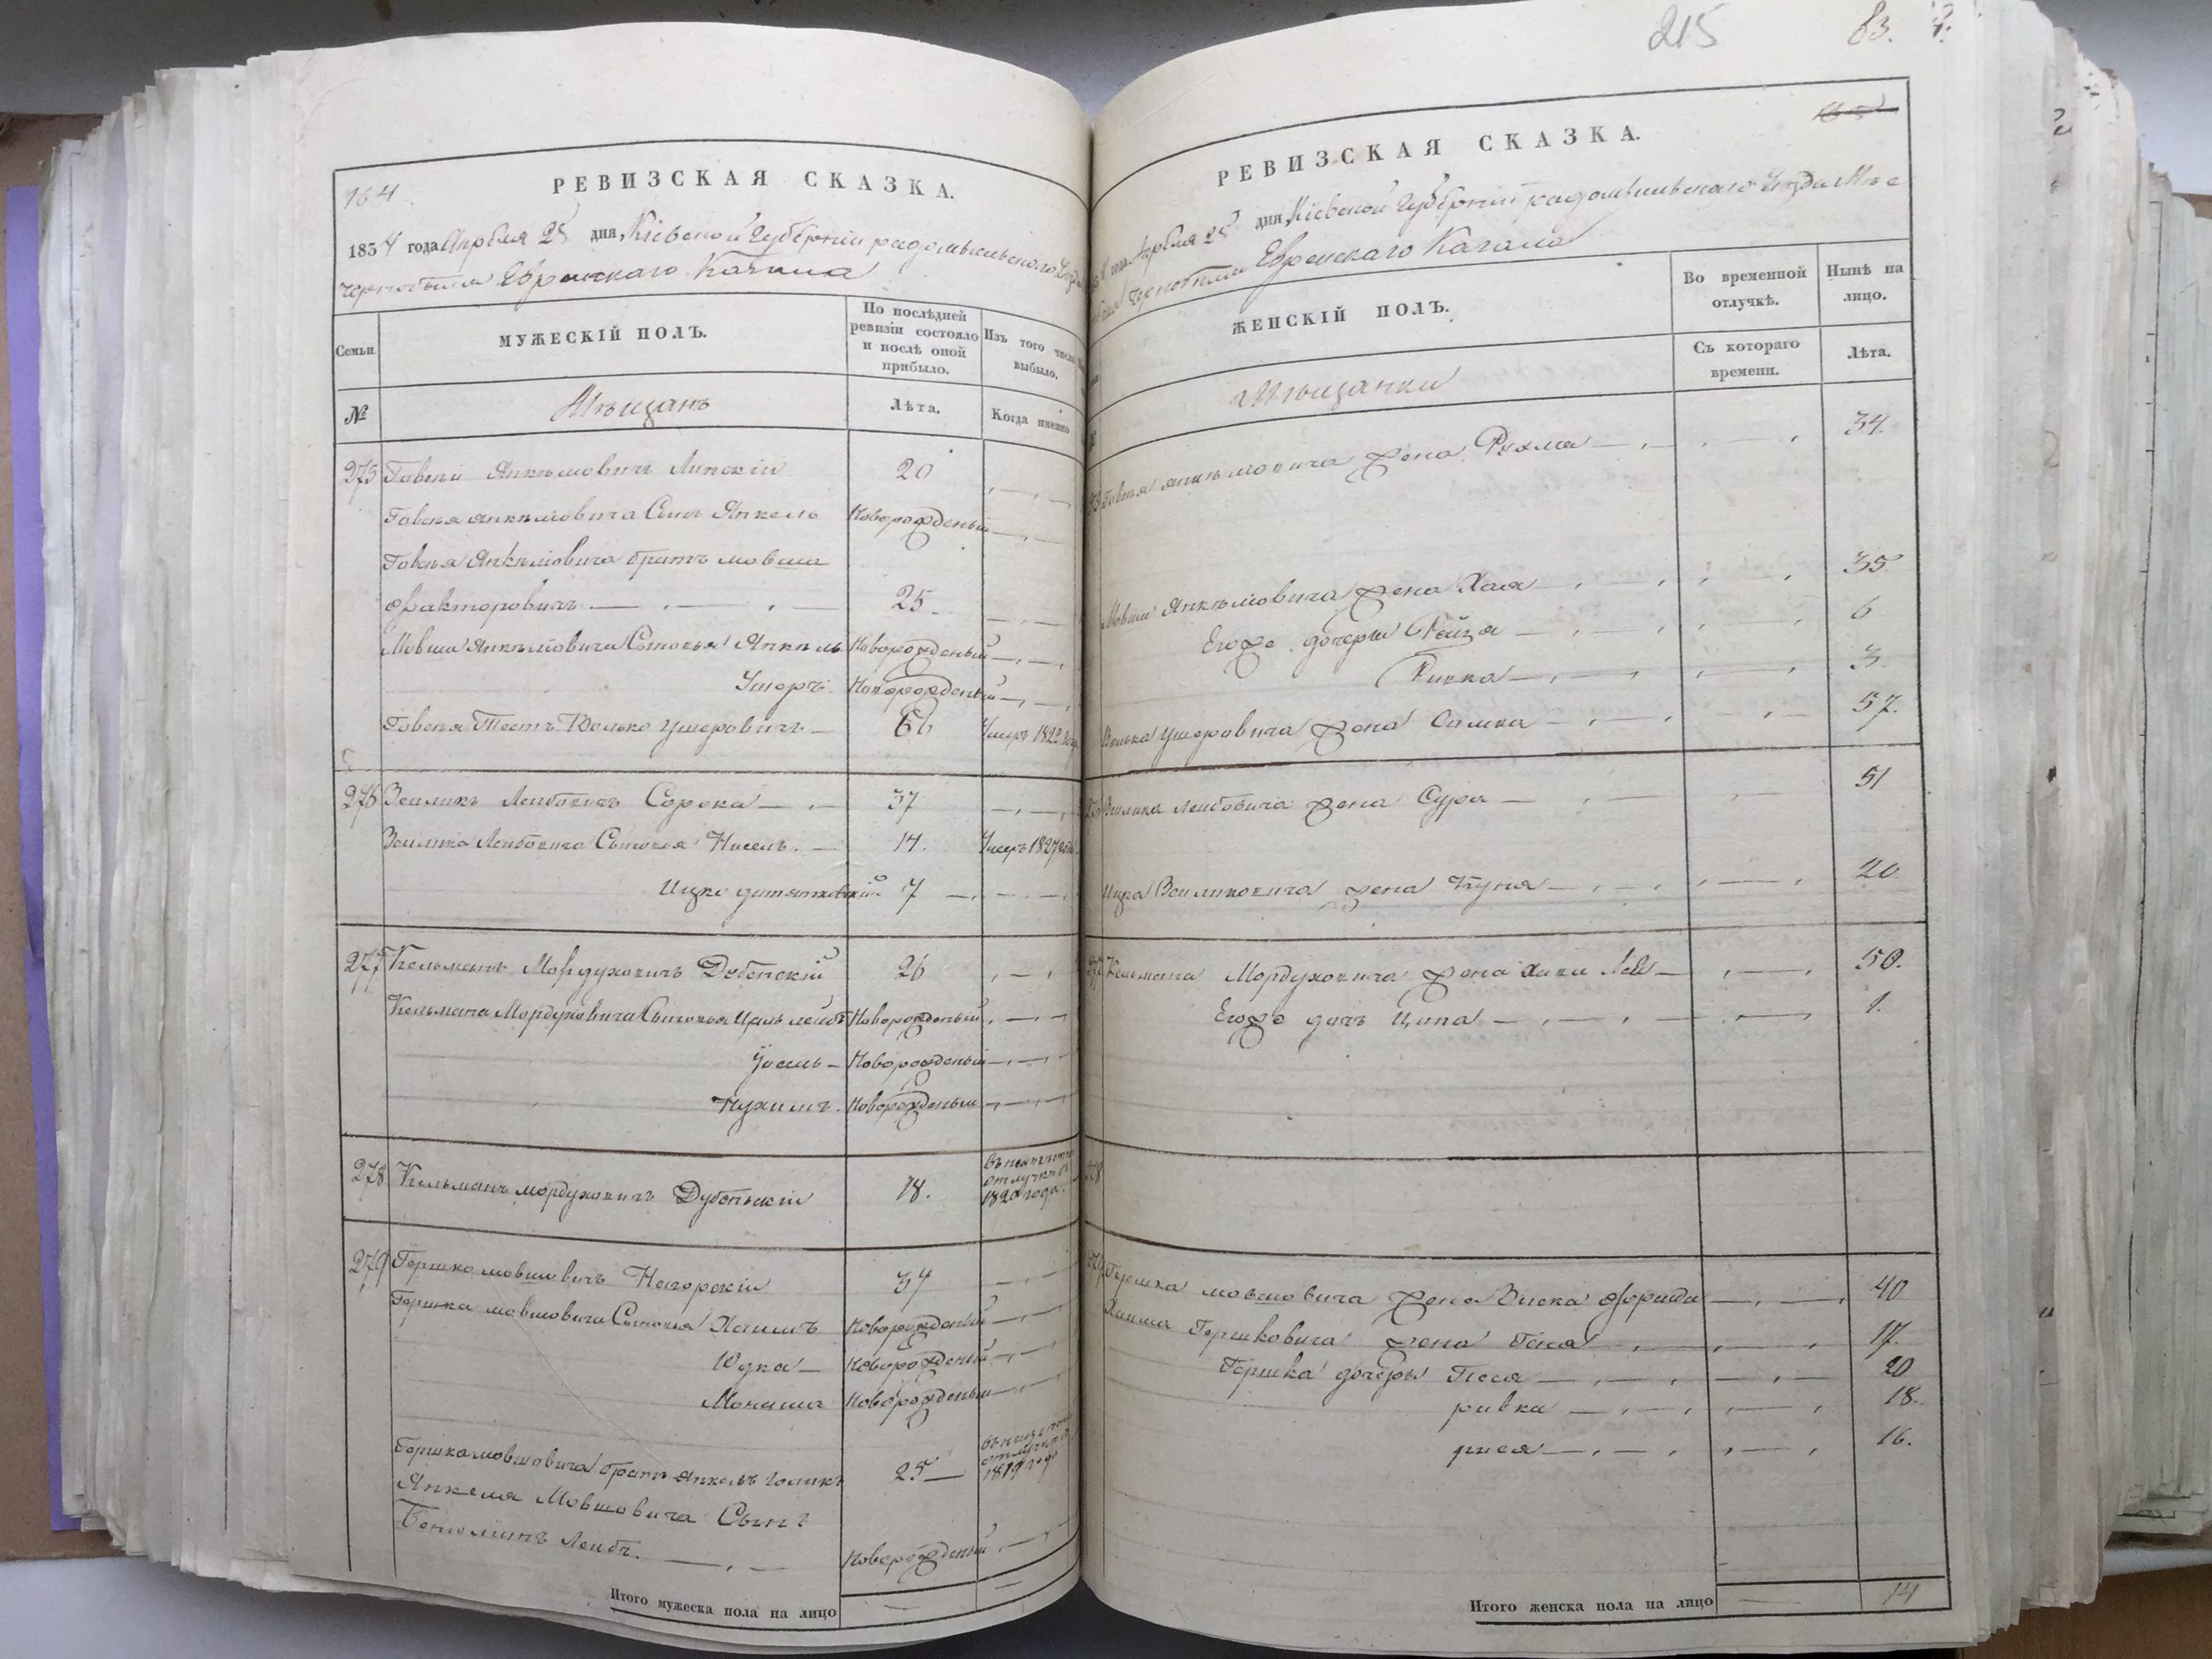 164.
РЕВИЗСКАЯ СКАЗКА.
1834 года Апреля 25 дня Кіевской Губерніи радомысльского
чернобыля Еврейскаго Кагала
Семьи
МУЖЕСКІЙ ПОЛЪ.
По послѣдней ревизіи состояло и послѣ оной прибыло.
Изъ того числа выбыло.
№
Мѣщанъ
Лѣта.
Когда именно
275 Говсѣй Янкѣлювичъ Липскій 20
Говсѣя Янкѣлювича Сынъ Янкель Новорожденый
Говсѣя Янкѣлювича братъ мовша
Факторовичъ 25
Мовши Янкѣлювича Сыновья Янкѣль Новорожденый
Ушоръ Новорожденый
Говсѣя Тестъ Волько Ушеровичъ 66 Умеръ 1822 года
276 Зеиликъ Лейбовичъ Сорока 37
Зеилика Лейбовича Сыновья Нисель 14. Умеръ 1827 года
Ицко 7
277 Кельманъ Мордуховичъ Дубенскій 26
Кельмана Мордуховича Сыновья Новорожденый
Іосель Новорожденый
Нухимъ Новорожденый
278 Кельманъ мордуховичъ Дубенскій 18. отлучке съ 1820 года.
279 Гершко мовшовичъ Нагорскій 34
Гершка мовшовича Сыновья Хаимъ Новорожденый
Юдка Новорожденый
Монаша Новорожденый
Гершка мовшовича братъ Янкель 25
1819 года
Янкеля Мовшовича Сынъ
Бениоминъ Лейбъ. Новорожденый
Итого мужеска пола на лицо
215 83.
РЕВИЗСКАЯ СКАЗКА.
Апреля 25 дня Кіевской Губерніи радомысльскаго Уезда Мѣс
чернобыля Еврейскаго Кагала
ЖЕНСКІЙ ПОЛЪ.
Во временной отлучкѣ.
Нынѣ на лицо.
Съ котораго времени.
Лѣта.
Мѣщанки
Говсѣя Янкѣлювича жена Рухма 34.
Мовши Янкѣлювича жена Хая 35
Егоже дочери Рейза 6
Ривка 3.
Волька Ушеровича жена 57.
Зеилика Лейбовича жена Сура 51
Ицка Зеиликовича жена 20.
277 Кельмана Мордуховича жена Хана Лея 50.
Егоже дочь Ципа 1.
278
279 Гершка мовшовича жена 40
Хаима Гершковича жена Геня 17.
Гершка дочери Песя 20
ривка 18.
16.
Итого женска пола на лицо 14